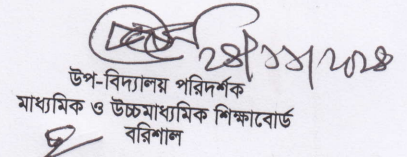 ২৪/১১/২০২৪
উপ-বিদ্যালয় পরিদর্শক
মাধ্যমিক ও উচ্চমাধ্যমিক শিক্ষাবোর্ড
বরিশাল